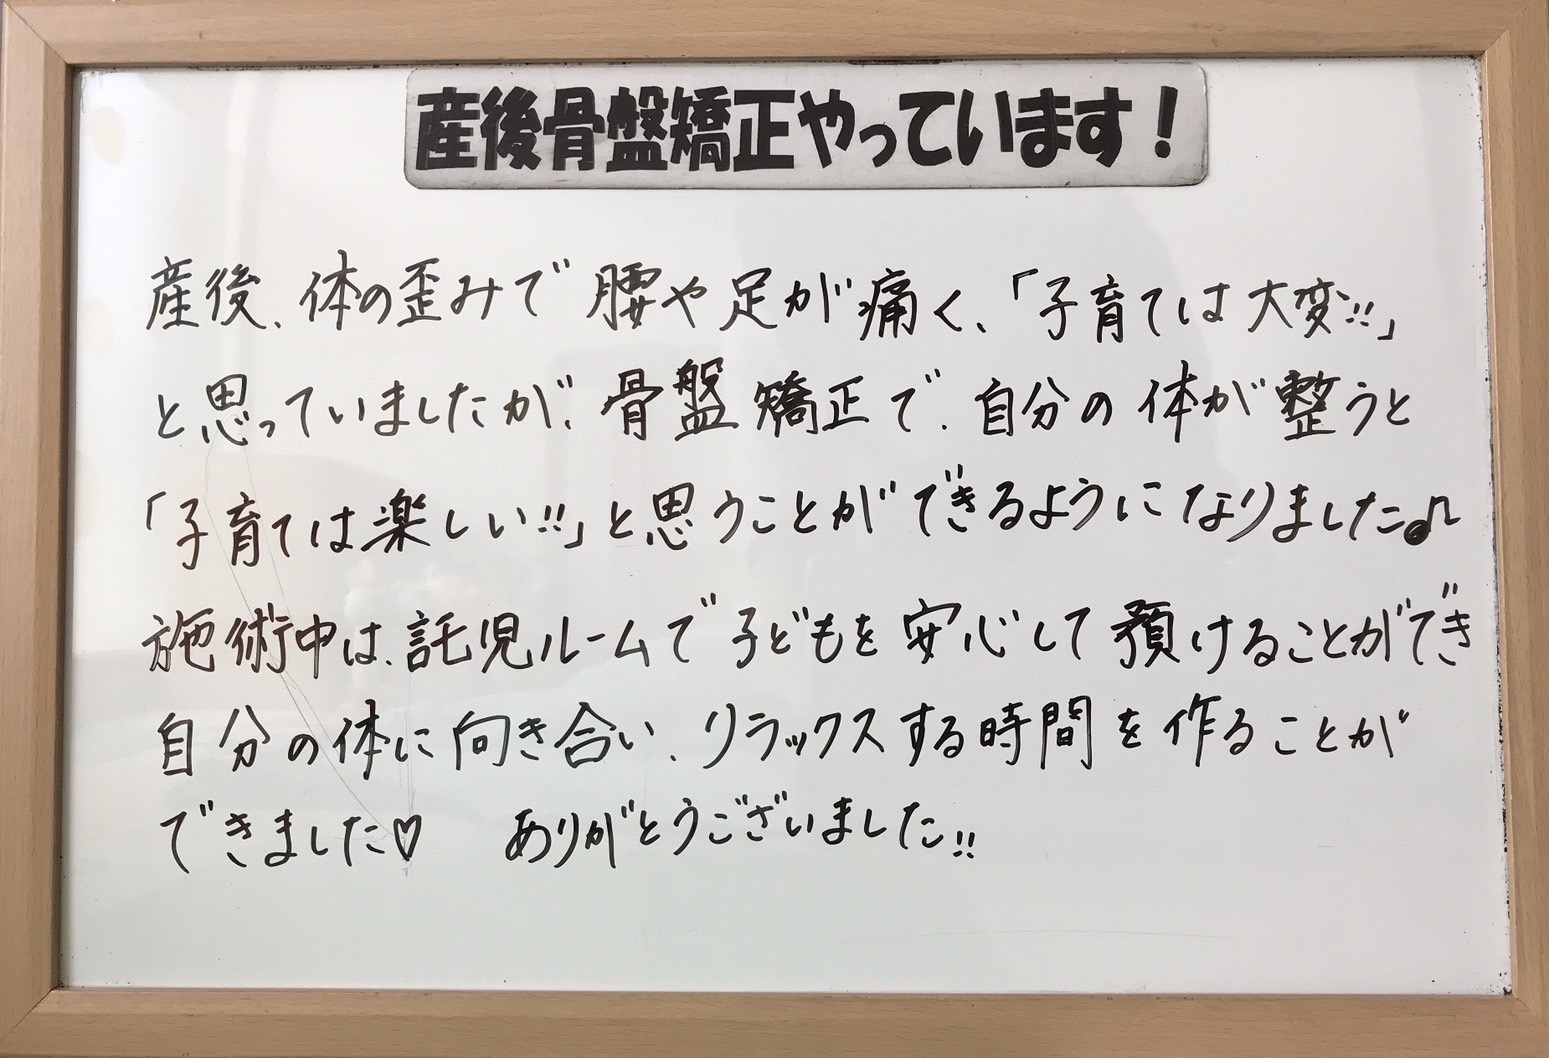 産後骨盤矯正やっています！
産後、体の歪みで腰や足が痛く、「子育ては大変!!」
と思っていましたが、骨盤矯正で、自分の体が整うと
「子育ては楽しい!!」と思うことができるようになりました♪
施術中は、託児ルームで子どもを安心して預けることができ
自分の体に向き合い、リラックスする時間を作ることが
できました♡　ありがとうございました!!